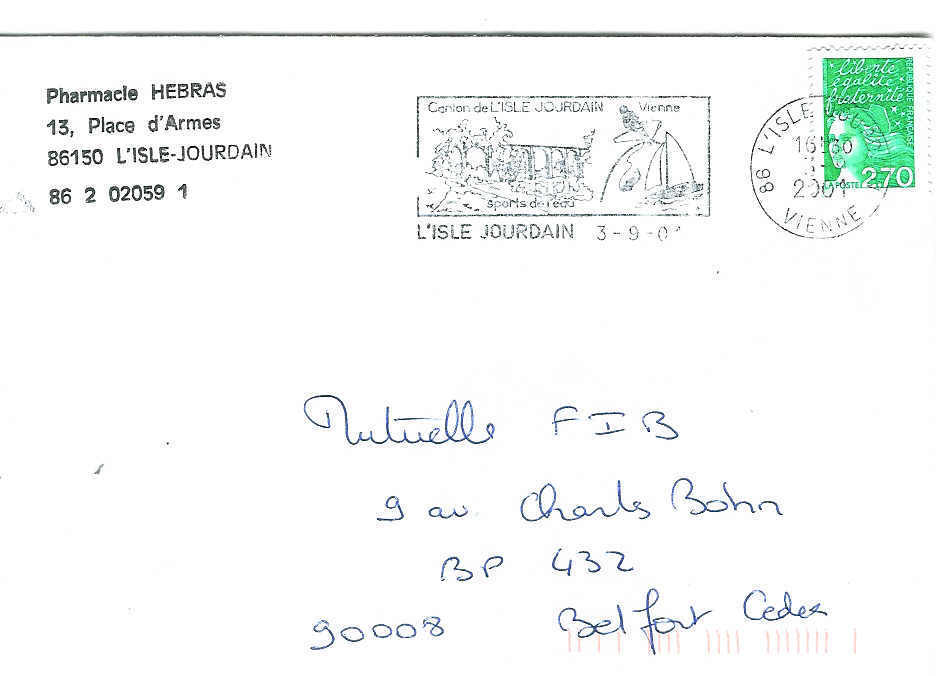 Pharmacie HEBRAS
13, Place d'Armes
86150 L'ISLE-JOURDAIN
86 2 02059 1
Canton de L'ISLE JOURDAIN Vienne
sports de l'eau
L'ISLE JOURDAIN 3-9-0
86 L'ISLE JOURDAIN
16H30
2001
VIENNE
liberté
égalité
fraternité
RÉPUBLIQUE
LA POSTE 2,70
Mutuelle FIB
9 av. Charles Bohn
BP 432
90008 Belfort Cedex